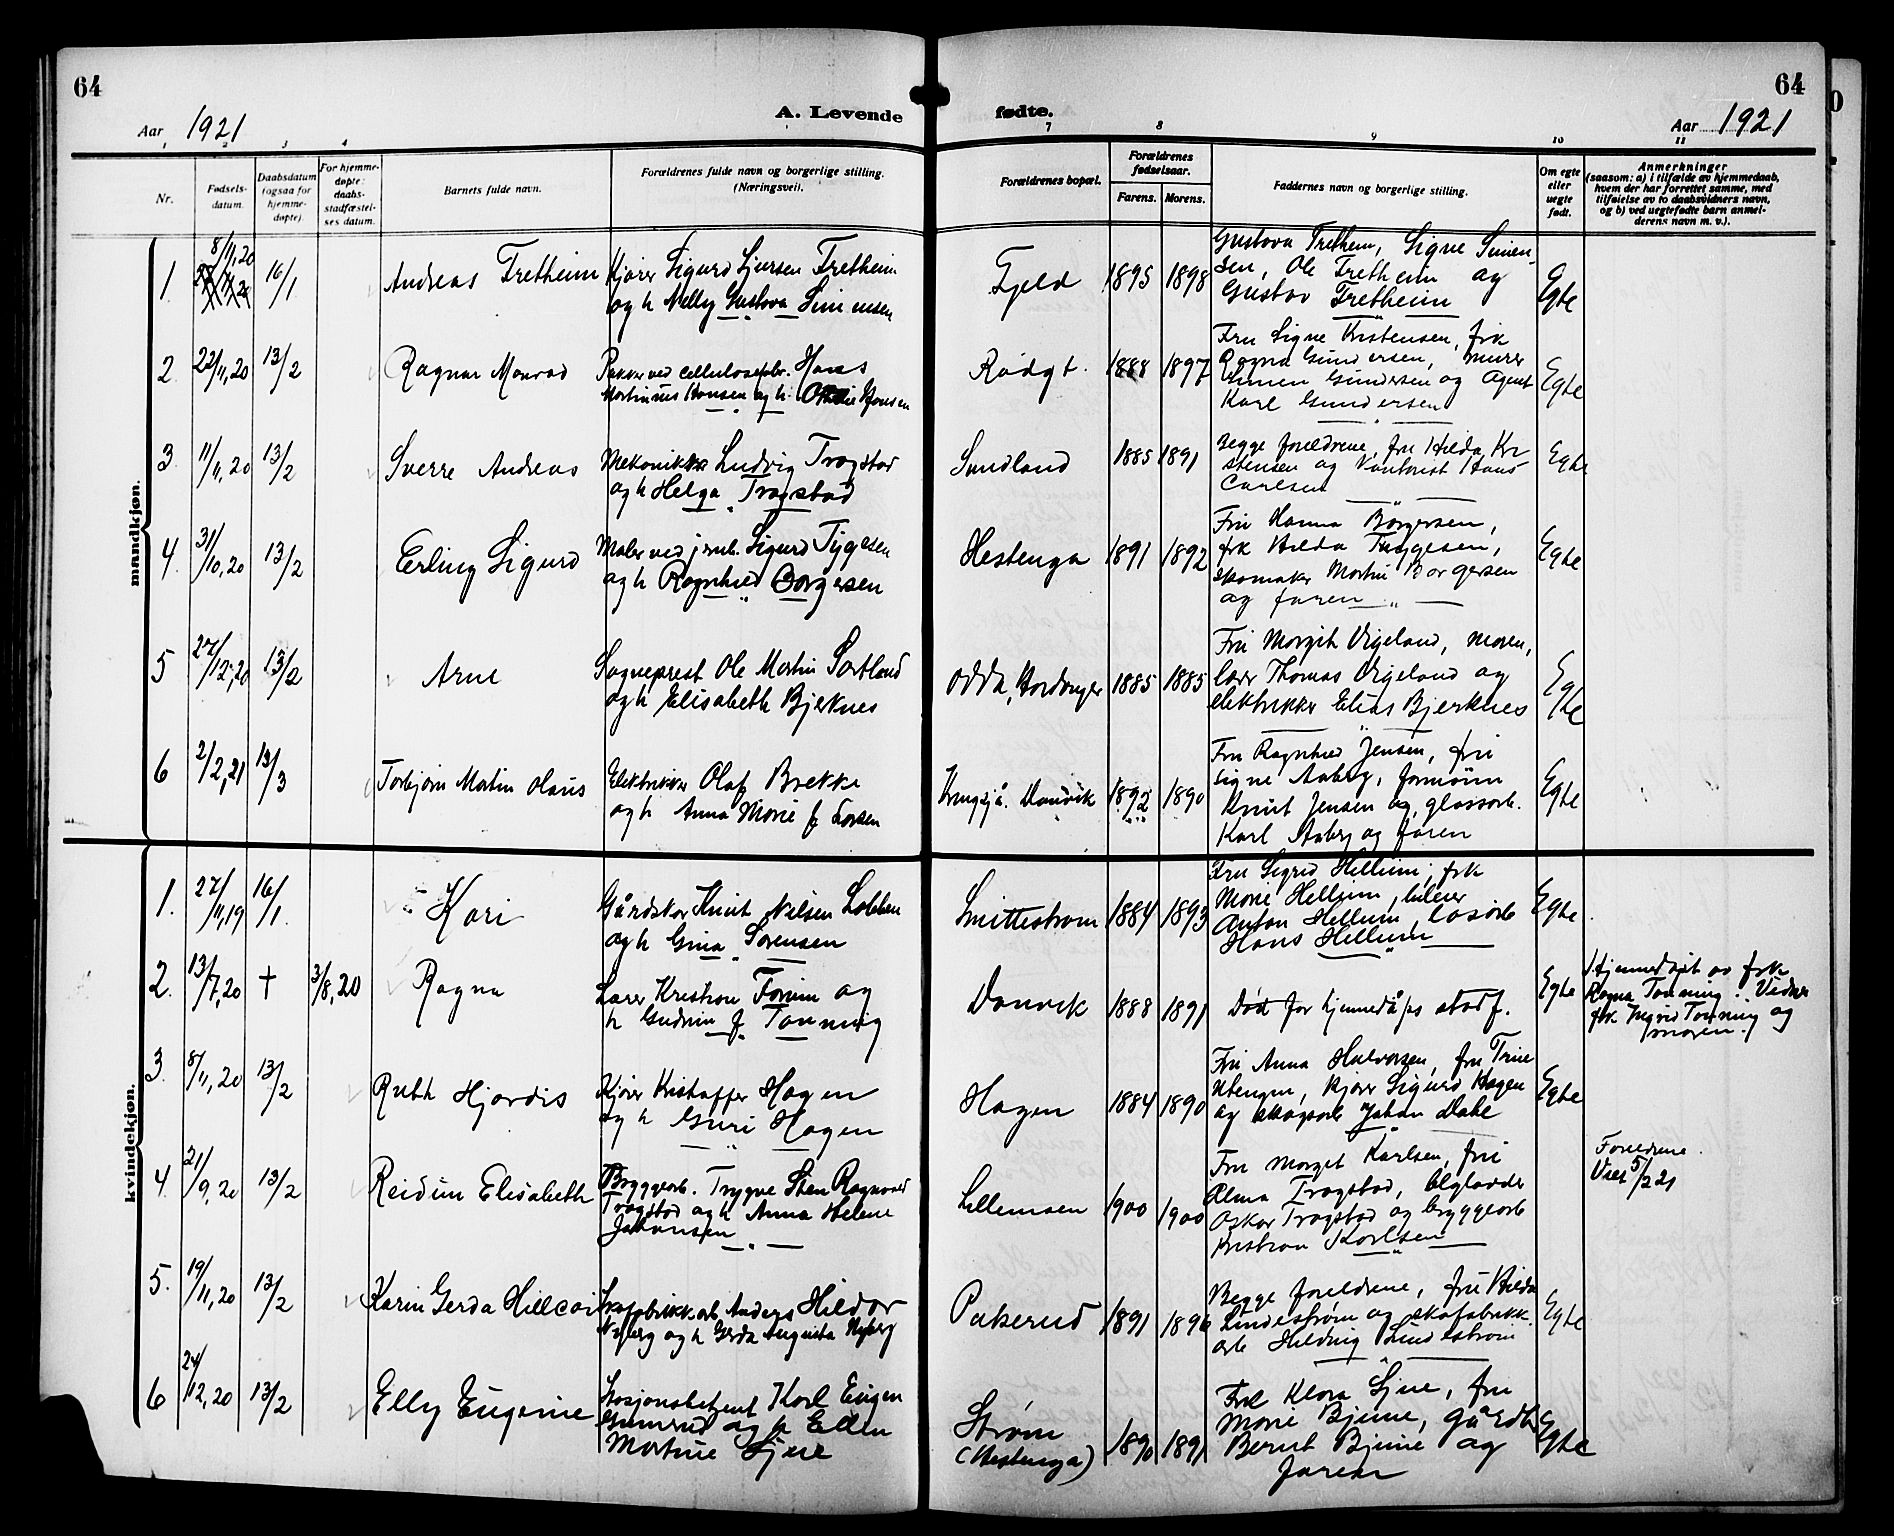 64
64
A. Levende fødte.
Aar 1921
Aar 1921
1 2 3 4 7 8 9 10 11
Nr.
Fødsels-
datum.
Daabsdatum
(ogsaa for
hjemme-
døpte).
For hjemme-
døpte:
daabs-
stadfæstel-
ses datum.
Barnets fulde navn.
Forældrenes fulde navn og borgerlige stilling.
(Næringsvei).
Forældrenes bopæl.
Forældrenes
fødselsaar.
Farens. Morens.
Faddernes navn og borgerlig stilling.
Om egte
eller
uegte
født.
Anmerkninger
(saasom: a) i tilfælde av hjemmedaab,
hvem der har forrettet samme, med
tilføielse av to daabsvidners navn,
og b) ved uegtefødte barn anmel-
derens navn m. v.).
mandkjøn.
1. 8/11,20 16/1 Andreas Fretheim
Kjører Sigurd Sjursen Fretheim
og h Nelly Gustava Simensen
Fjeld 1895 1898
Gustava Fretheim, Signe Simen-
sen, Ole Fretheim og
Gustav Fretheim
Egte
2. 22/11,20 13/2 Ragnar Monrad
Pakker ved cellulosefabr. Hans
Martinius Hansen og h. Hansen
Rødgt. 1888 1897
Fru Signe Kristensen, frk
Ragna Gundersen, murer
Simen Gundersen og Agent
Karl Gundersen
Egte
3. 11/11,20 13/2 Sverre Andreas
Mekaniker Ludvig Trogstad
og h Helga Trogstad
Sundland 1885 1891
Begge foreldrene, fru Hilda Kri
stensen og Hans
Carlsen
Egte
4. 31/10,20 13/2 Erling Sigurd
Maler ved jernb. Sigurd Tygesen
og h Ragnhild Borgersen
Hestenga 1891 1892
Fru Hanna Borgersen,
frk Hilda Tryggesen,
skomaker Martin Borgersen
og faren
Egte
5 27/12,20 13/2 Arne
Sogneprest Ole Martin Sortland
og h Elisabeth Bjerknes
Odda, Hardanger 1885 1885
Fru Margit Vigeland, moren,
lærer Thomas Vigeland og
elektriker Elias Bjerknes
Egte
6 2/2,21 13/3 Torbjørn Martin Olaus
Elektriker Olaf Brekke
og h Anna Marie f. Larsen
Kringsjå. Danvik 1892 1890
Fru Ragnhild Jensen, fru
Signe Aaberg, formann
Knut Jensen og glassarb.
Karl Aaberg og faren
Egte
kvindekjøn.
1. 27/11,19 16/1. Kari
Gårdskar Knut Nilsen Lobben
og h Gina Sørensen
Smittestrøm 1884 1893
Fru Sigrid Hellum, frk
Marie Hellum,
Anton Hellum, løsarb
Hans Hellum
Egte
2. 13/7,20 † 3/8,20 Ragna
Lærer Kristian Forum og
h Gudrun f. Tønning
Danvik 1888 1891
Død før hjemmedåps stadf.
Egte
Hjemmedøpt av frk
Ragna Tønning. Vidner
frk Ingrid Tønning og
moren.
3. 8/11,20 13/2 Ruth Hjørdis
Kjører Kristoffer Hagen
og h Guri Hagen
Hagen 1884 1890
Fru Anna Halvorsen, fru Trine
Utengen, kjører Sigurd Hagen
og skogsarb Johan Dahl
Egte
4. 21/9,20 13/2 Reidun Elisabeth
Bryggearb. Trygve Sten Ragnvald
Trogstad og h Anna Helene
Johansen
Lillemoen 1900 1900
Fru Margit Karlsen, fru
Alma Trogstad, ølgjødder
Oskar Trogstad og bryggearb
Kristian Karlsen
Foreldrene
Viet 5/2 21
5. 19/11,20 13/2 Karin Gerda Hillevi
Skofabrikk.arb Anders Hildor
Nyberg og h Gerda Augusta Nyberg
Pukerud 1891 1896
Begge foreldrene, fru Hilda
Lindestrøm og skofabrikk.
arb Helding Lindestrøm
Egte
6 24/12,20 13/2 Elly Eugenie
Stasjonsbetjent Karl Eugen
Gunerud og h Ellen
Martine Sjue
Strøm
(Hestenga) 1890 1891
Frk Klara Sjue, fru
Marie Bjune, gårdbr
Bernt Bjune og
faren
Egte